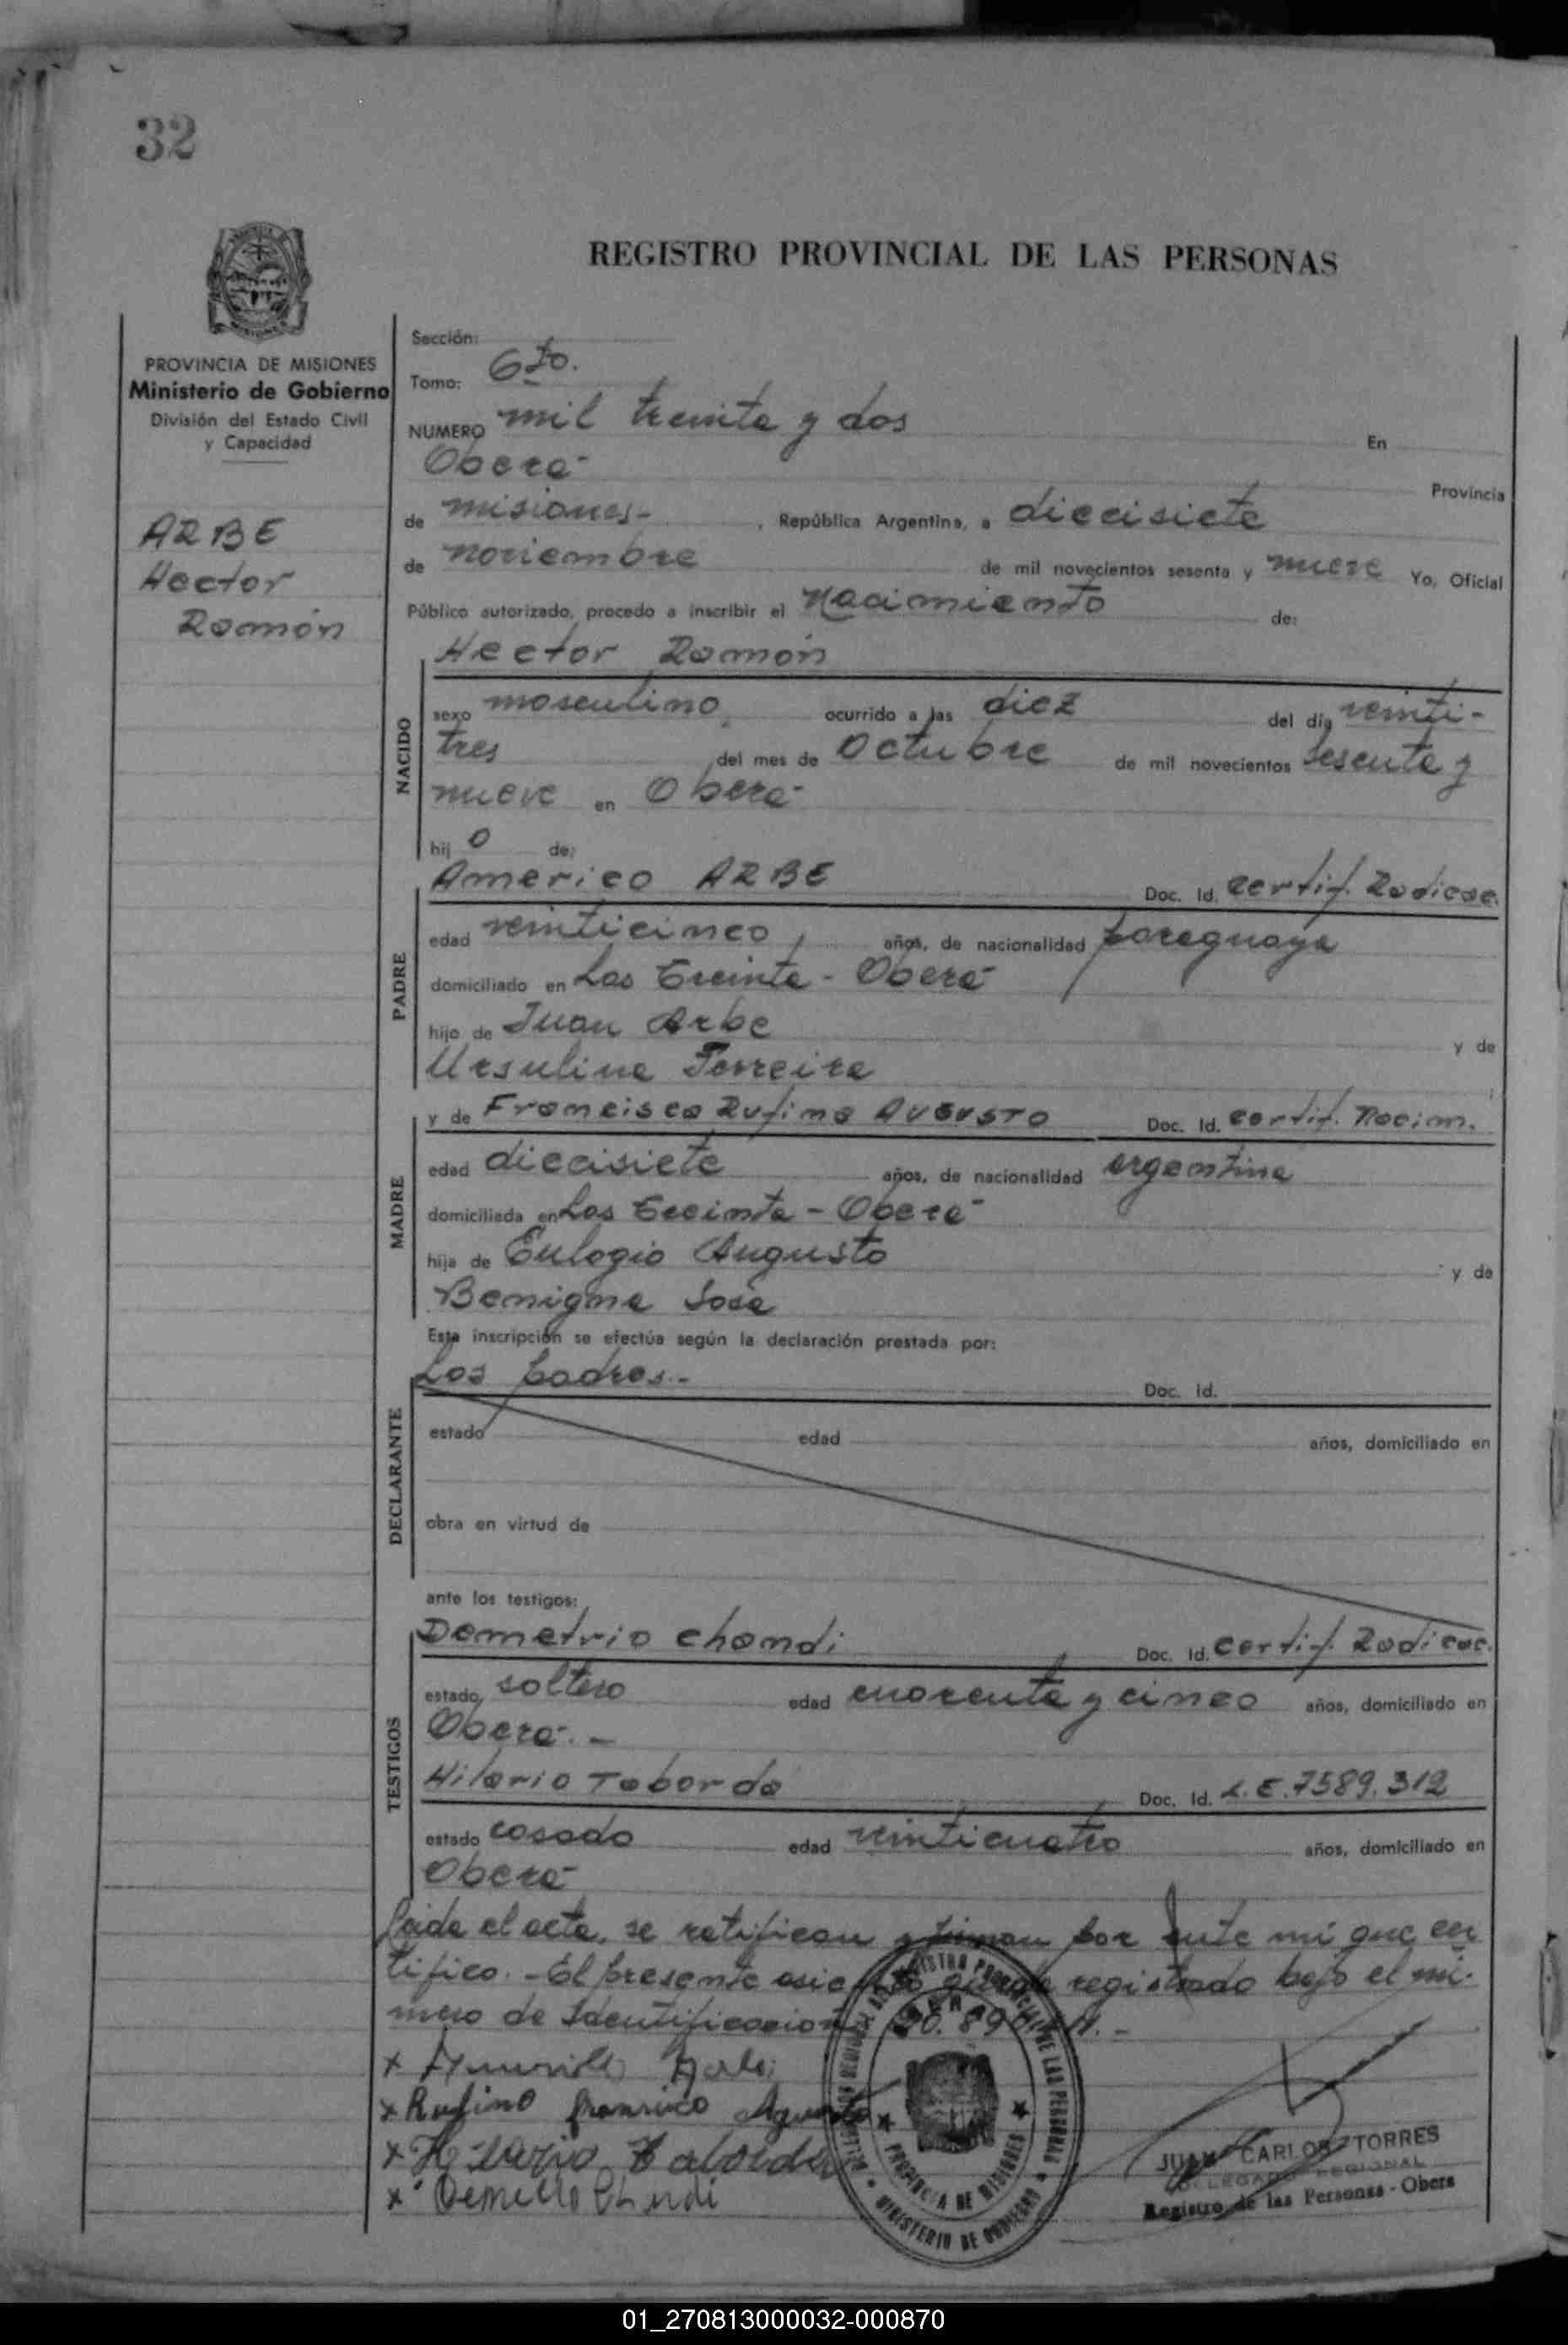 32
REGISTRO PROVINCIAL DE LAS PERSONAS
PROVINCIA DE MISIONES
Ministerio de Gobierno
División del Estado Civil
y Capacidad
ARBE
Hector
Ramón
Sección:
Tomo: 6to.
NUMERO mil treinta y dos En
Oberá
Provincia
de Misiones.- , República Argentina, a diecisiete
de noviembre de mil novecientos sesenta y nueve Yo, Oficial
Público autorizado, procedo a inscribir el Nacimiento de:
Hector Ramón
NACIDO
sexo masculino, ocurrido a las diez del día veinti-
tres del mes de Octubre de mil novecientos sesenta y
nueve en Oberá
hij o de:
PADRE
Americo ARBE Doc. Id. certif. Radicac.
edad veinticinco, años, de nacionalidad paraguaya
domiciliado en Las Treinta - Oberá
hijo de Juan Arbe y de
Ursulina Ferreira
MADRE
y de Francisca Rufina AUGUSTO Doc. Id. certif. Nacim.
edad diecisiete años, de nacionalidad argentina
domiciliada en Las Treinta - Oberá
hija de Eulogio Augusto y de
Benigna Sosa
Esta inscripción se efectúa según la declaración prestada por:
DECLARANTE
Los padres.- Doc. id.
estado edad años, domiciliado en
obra en virtud de
ante los testigos:
TESTIGOS
Demetrio Chamdi Doc. Id. certif. Radicac.
estado soltero edad cuarenta y cinco años, domiciliado en
Oberá.-
Hilario Taborda Doc. Id. L.E. 7589.312
estado casado edad veinticuatro años, domiciliado en
Oberá
Leida el acta, se ratifican y firman por ante mí que cer
tifico.- El presente asiento queda registrado bajo el nú-
mero de Identificación 20.89
Rufino Agusto
Hilario Taborda
MINISTERIO DE GOBIERNO
PROVINCIA DE MISIONES
JUAN CARLOS TORRES
DELEGADO REGIONAL
Registro de las Personas - Obera
01_270813000032-000870